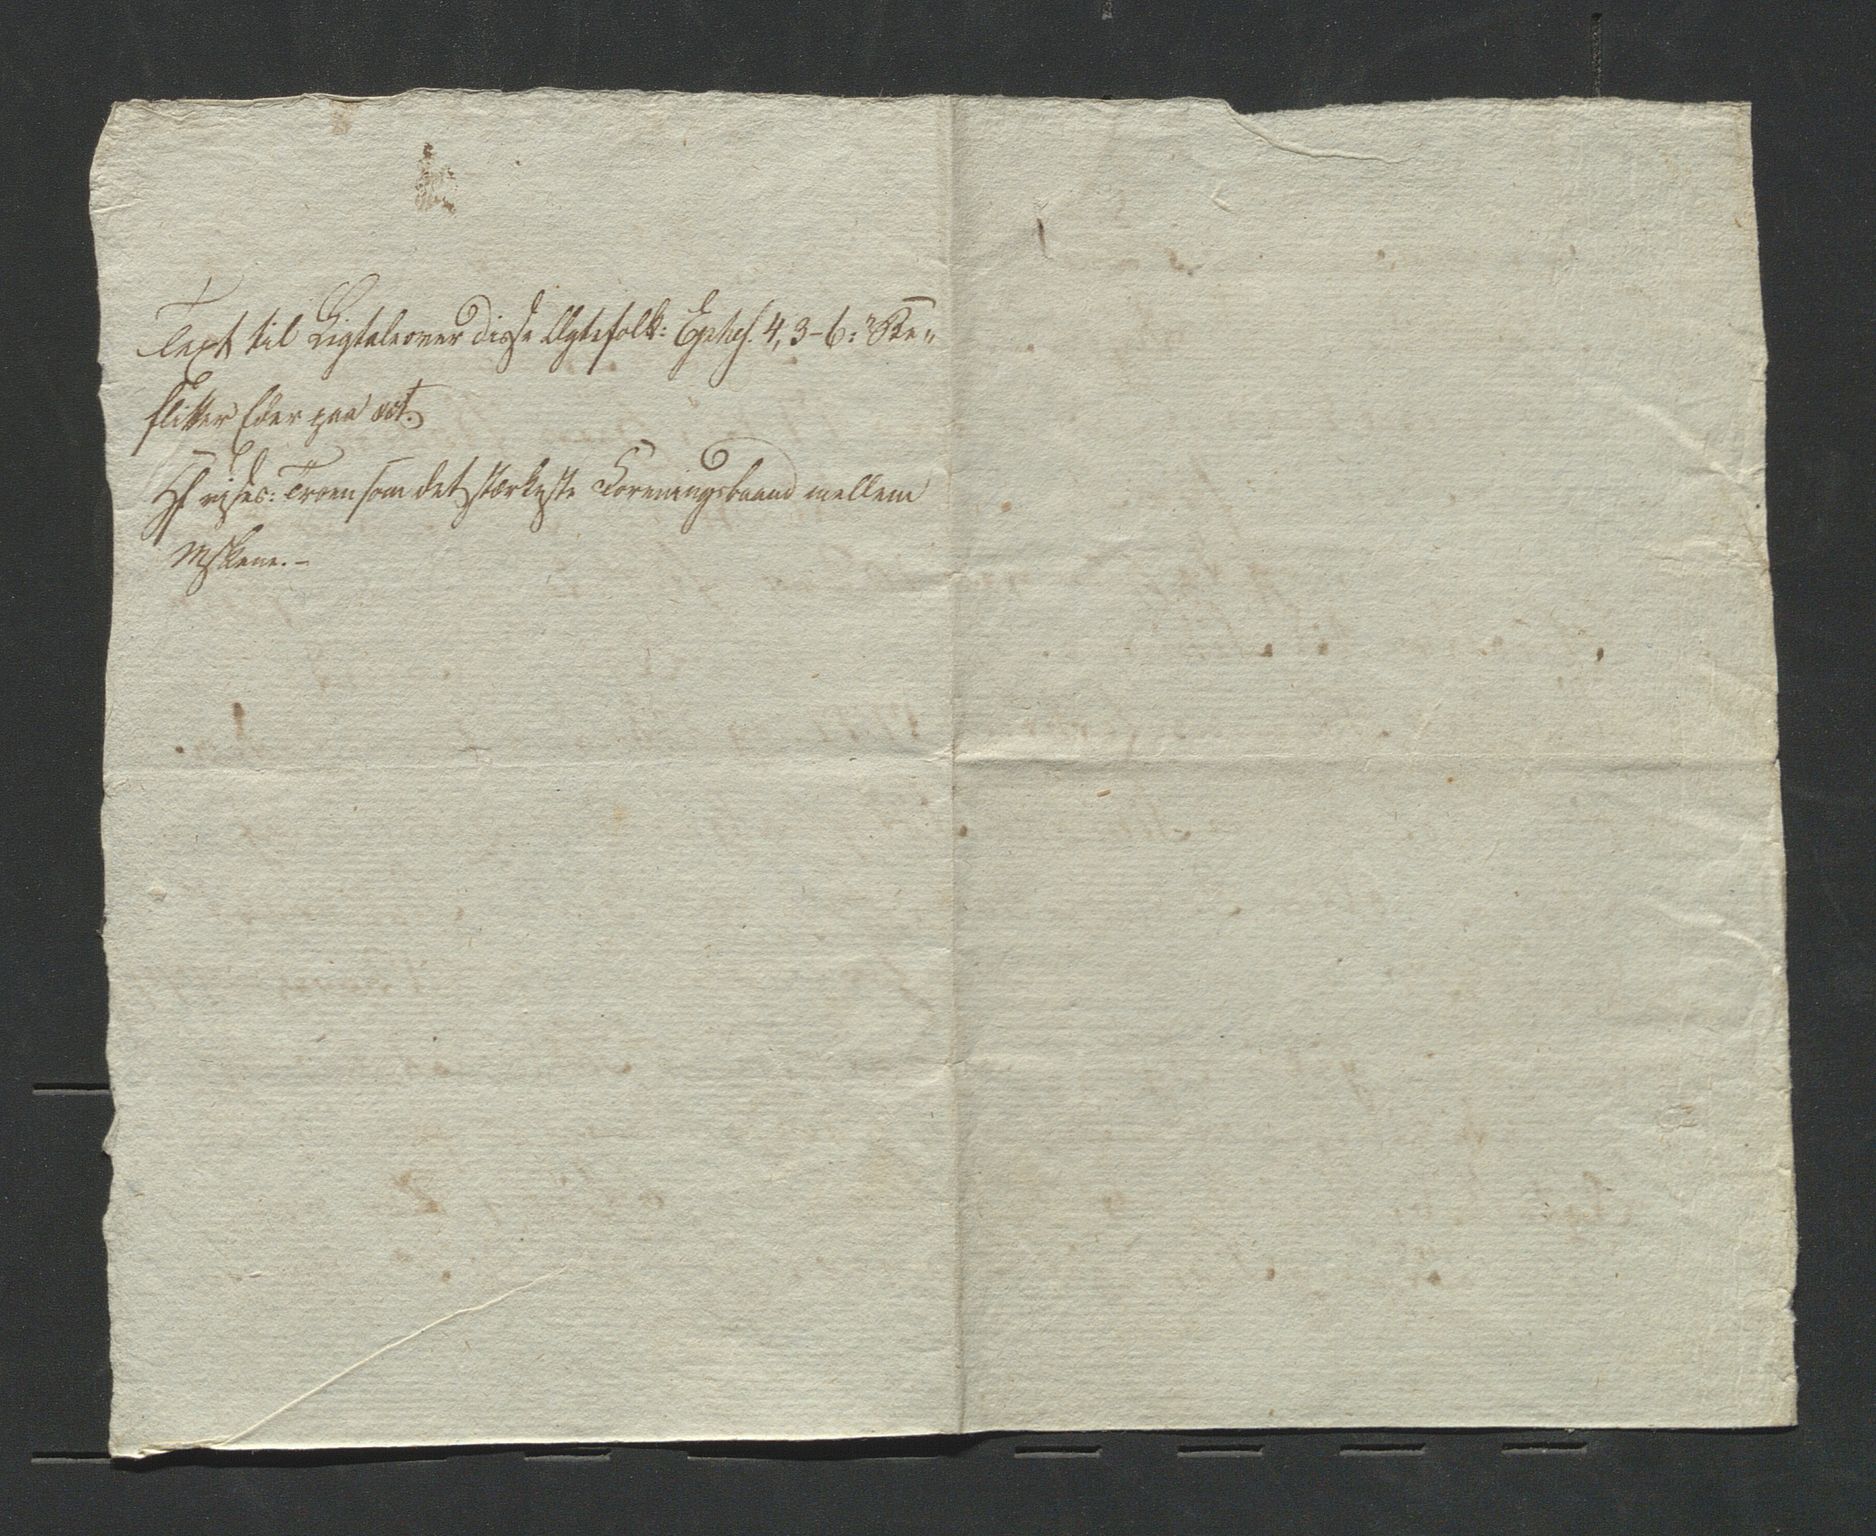 Text til Ligtale over disse Ægtefolk: Ephes. 4, 3-6: "Be"
flitter Eder paa etc.
Hf vises: Troen som det stærkeste Foreningsbaand mellem
Mskene. -